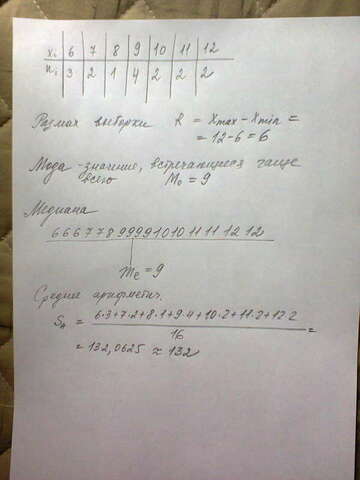 xi 6 7 8 9 10 11 12
ni 3 2 1 4 2 2 2
Размах выборки R = Xmax - Xmin =
= 12-6 = 6
Мода - значение, встречающиеся чаще
всего Mo = 9
Медиана
6 6 6 7 7 8 9 9 9 9 10 10 11 11 12 12
me = 9
Среднее арифметич.
6·3+7·2+8·1+9·4+10·2+11·2+12·2
16
=
= 132,0625 ≈ 132